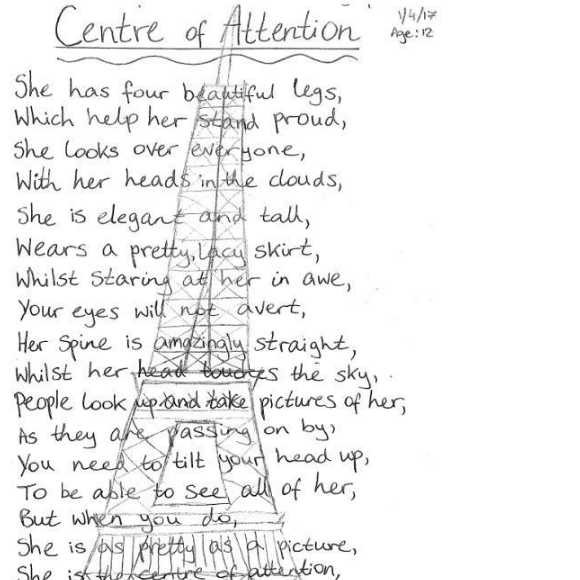 Centre of Attention
1/4/17
Age: 12
She has four beautiful legs,
Which help her stand proud,
She looks over everyone,
With her heads in the clouds,
She is elegant and tall,
Wears a pretty, lacy skirt,
Whilst staring at her in awe,
Your eyes will not avert,
Her spine is amazingly straight,
Whilst her head touches the sky,
People look up and take pictures of her,
As they are passing on by,
You need to tilt your head up,
To be able to see all of her,
But when you do,
She is as pretty as a picture,
She is the centre of attention,